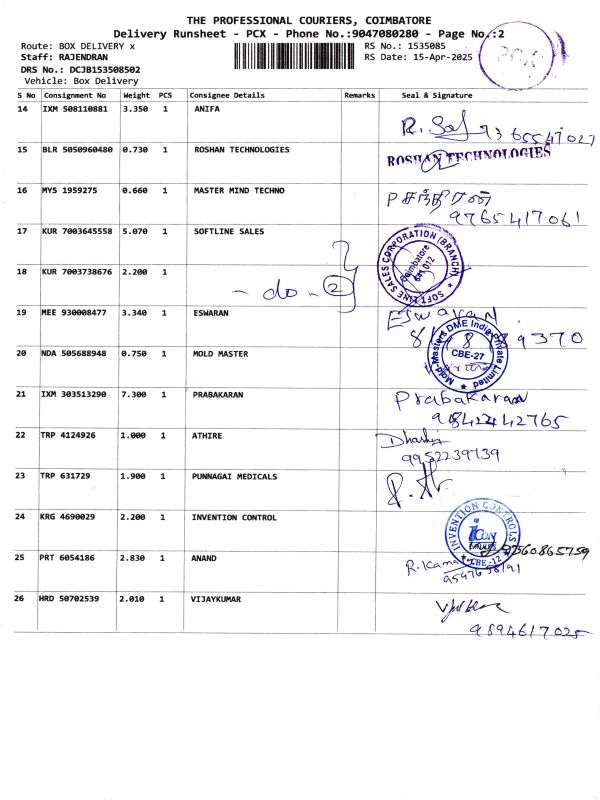 THE PROFESSIONAL COURIERS, COIMBATORE
Delivery Runsheet - PCX - Phone No.:9047080280 - Page No.:2
PCX
Route: BOX DELIVERY x
RS No.: 1535085
Staff: RAJENDRAN
RS Date: 15-Apr-2025
DRS No.: DCJB153508502
Vehicle: Box Delivery
S No Consignment No Weight PCS Consignee Details Remarks Seal & Signature
14 IXM 508110881 3.350 1 ANIFA
15 BLR 5050960480 0.730 1 ROSHAN TECHNOLOGIES ROSHAN TECHNOLOGIES
16 MYS 1959275 0.660 1 MASTER MIND TECHNO
9765417061
17 KUR 7003645558 5.070 1 SOFTLINE SALES
SOFT LINE SALES CORPORATION (BRANCH) Coimbatore 641 012
18 KUR 7003738676 2.200 1
- do - 2
19 MEE 930008477 3.340 1 ESWARAN Eswaran
20 NDA 505688948 0.750 1 MOLD MASTER
Mold-Masters DME India Private Limited CBE-27
21 IXM 303513290 7.300 1 PRABAKARAN Prabakaran
9842442765
22 TRP 4124926 1.000 1 ATHIRE
9952239739
23 TRP 631729 1.900 1 PUNNAGAI MEDICALS
24 KRG 4690029 2.200 1 INVENTION CONTROL
INVENTION CONTROLS iCON CBE-12
25 PRT 6054186 2.830 1 ANAND
26 HRD 50702539 2.010 1 VIJAYKUMAR
9894617025